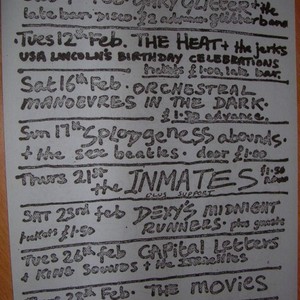 GARY GLITTER + the
late bar. Disco. £2 advance. glitter band
Tues 12th Feb. THE HEAT + the jerks
USA LINCOLN'S BIRTHDAY CELEBRATIONS
tickets £1.00. late bar.
Sat 16th Feb. ORCHESTRAL
MANOEVRES IN THE DARK.
£1.50 advance.
Sun 17th Splodgeness abounds.
+ the sex beatles. door £1.00
Thurs 21st the INMATES £1.50
plus support
SAT 23rd feb DEXY'S MIDNIGHT
tickets £1.50 RUNNERS. plus guests
Tues 26th Feb CAPITAL LETTERS
+ KING SOUNDS + the Israelites
28th Feb. THE MOVIES